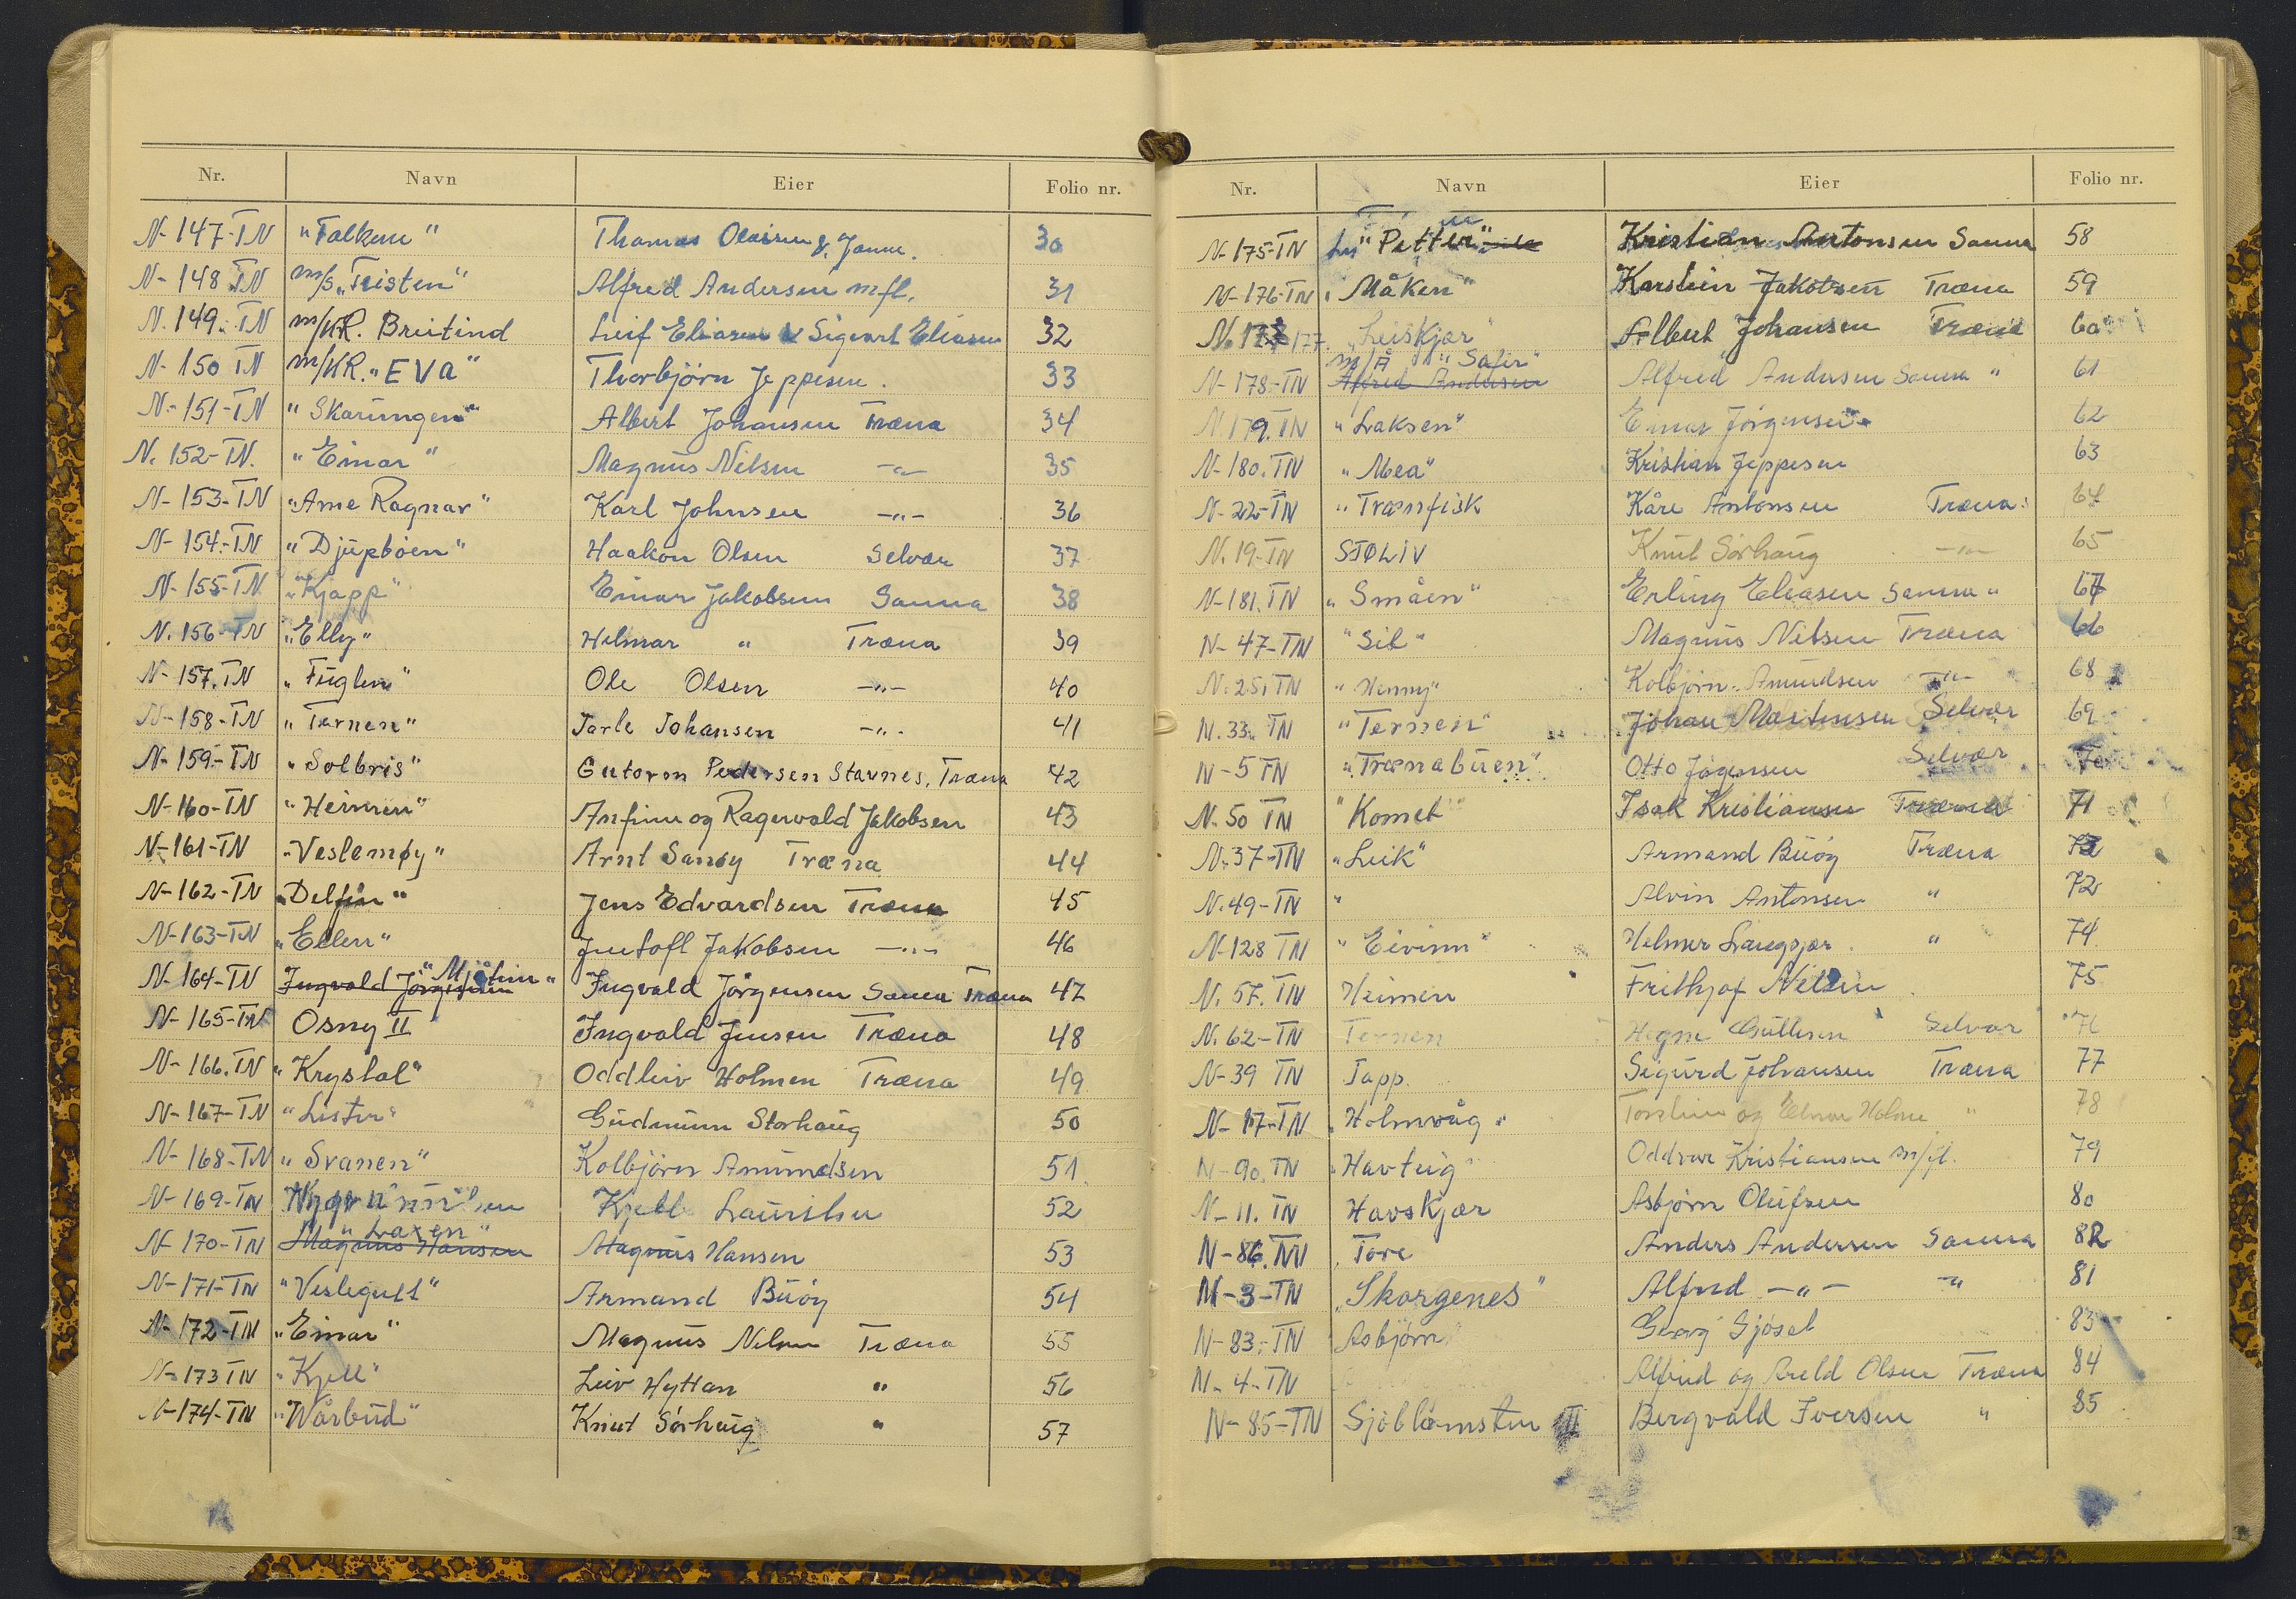 Nr. Navn Eier Folio nr.
N-147-TN "Falken" Thomas 30
N-148-TN m/s "Teisten" Alfred Andersen m.fl. 31
N-149-TN m/KR. Breitind Leif Eliasen & Sigvart Eliasen 32
N-150 TN m/KR. "EVA" Thorbjörn Jeppesen. 33
N-151-TN "Skarungen" Albert Johansen Træna 34
N. 152-TN. "Einar" Magnus Nilsen -"- 35
N-153-TN "Arne Ragnar" Karl Johnsen -"- 36
N-154-TN "Djupbøen" Haakon Olsen Selvær 37
N-155-TN "Kjapp" Einar Jakobsen Sanna 38
N. 156-TN "Elly" Helmar " Træna 39
N-157.TN "Fuglen" Ole Olsen -"- 40
N-158-TN "Ternen" Jarle Johansen -"- 41
N-159-TN "Solbris" Gutorm Pedersen Stavnes, Træna 42
N-160-TN "Heimen" Anfinn og Ragnvald Jakobsen 43
N-161-TN "Veslemøy" Arnt Sanöy Træna 44
N-162-TN "Delfin" Jens Edvardsen Træna 45
N-163-TN "Ellen" Jentoft Jakobsen -"- 46
N-164-TN Ingvald Jörgensen Ingvald Jörgensen Sanna Træna 47
N-165-TN Osny II Ingvald Jensen Træna 48
N-166.TN "Krystal" Oddleiv Holmen Træna 49
N-167-TN "Lister" Gudmunn Storhaug 50
N-168-TN "Svanen" Kolbjörn Amundsen 51
N-169-TN Kjell Lauritsen 52
N-170-TN "Laxen" Magnus Hansen Magnus Hansen 53
N-171-TN "Veslegutt" Armand Buöy 54
N-172-TN "Einar" Magnus Nilsen Træna 55
N-173 TN "Kjell" Leiv Hyttan " 56
N-174-TN "Vårbud" Knut Sörhaug " 57
Nr. Navn Eier Folio nr.
N-175-TN "Petter" Kristian Antonsen Sanna 58
N-176-TN "Måken" Karstein Jakobsen Træna 59
N. 177. "Leiskjær" Albert Johansen Træna 60
N-178-TN m/Å "Safir" Alfred Andersen Alfred Andersen Sanna " 61
N 179. TN "Laksen" Einar Jörgensen 62
N-180. TN "Mea" Kristian Jeppesen 63
N-22-TN "Trænfisk Kåre Antonsen Træna 64
N. 19-TN SJØLIV Knut Sörhaug -"- 65
N-181. TN "Småen" Erling Eliasen Sanna " 67
N-47-TN "Sil" Magnus Nilsen Træna 66
N. 25. TN "Henny" Kolbjörn Amundsen -"- 68
N. 33. TN "Ternen" Johan Martinsen Selvær 69
N-5 TN "Trænabuen" Otto Jörgensen Selvær 70
N. 50 TN "Komet" Isak Kristiansen Træna 71
N-37-TN "Leik" Armand Buöy Træna 73
N. 49-TN " Alvin Antonsen " 72
N-128 TN "Eivinn" Helmer Langsjær " 74
N. 57. TN Heimen Frithjof Nilsen 75
N. 62-TN Ternen Selvær 76
N-39 TN Japp. Sigurd Johansen Træna 77
N-17-TN "Holmvåg" og Holmen " 78
N-90. TN "Havteig" Oddvar Kristiansen m/fl. 79
N-11. TN Havskjær Asbjörn Olufsen 80
N-86. TN Tore Anders Andersen Sanna 82
N-3-TN "Skorgenes" Alfred -"- -" 81
N-83.-TN Asbjörn Georg Sjöset 83
N-4-TN Alfred og Areld Olsen Træna 84
N-85-TN Sjöblomsten II Bergvald Iversen " 85